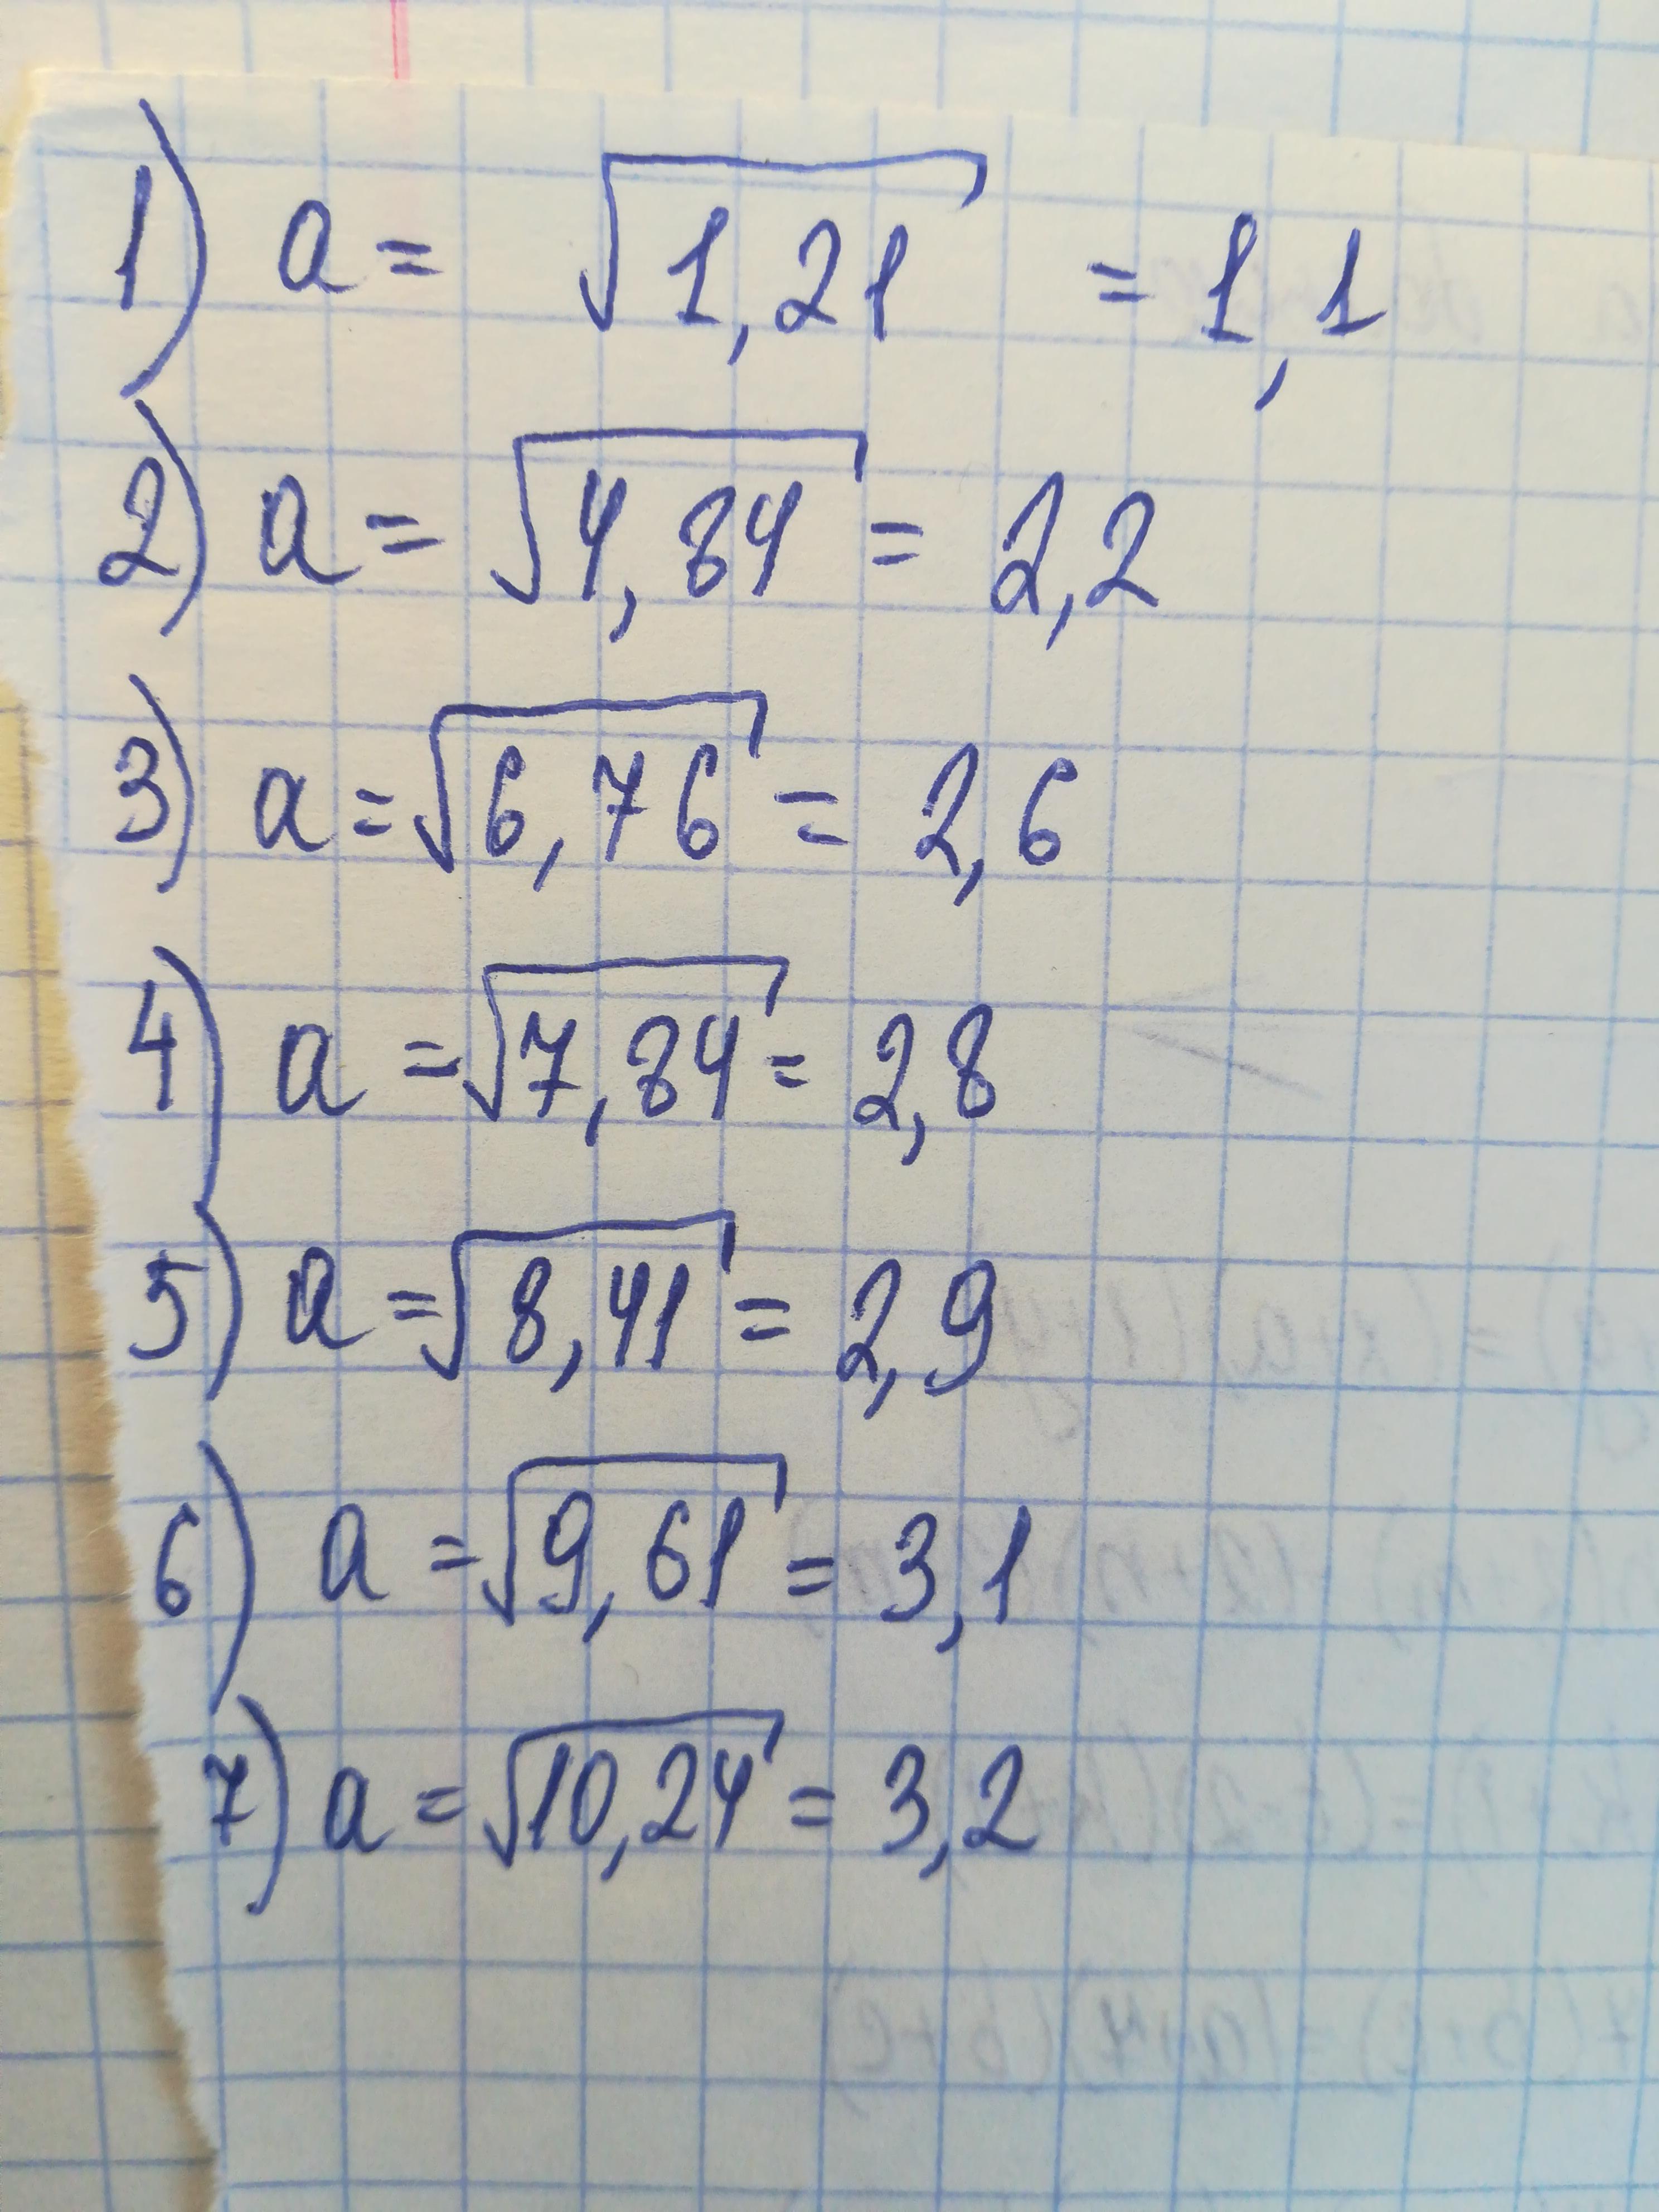 1) a = √1,21 = 1,1
2) a = √4,84 = 2,2
3) a = √6,76 = 2,6
4) a = √7,84 = 2,8
5) a = √8,41 = 2,9
6) a = √9,61 = 3,1
7) a = √10,24 = 3,2